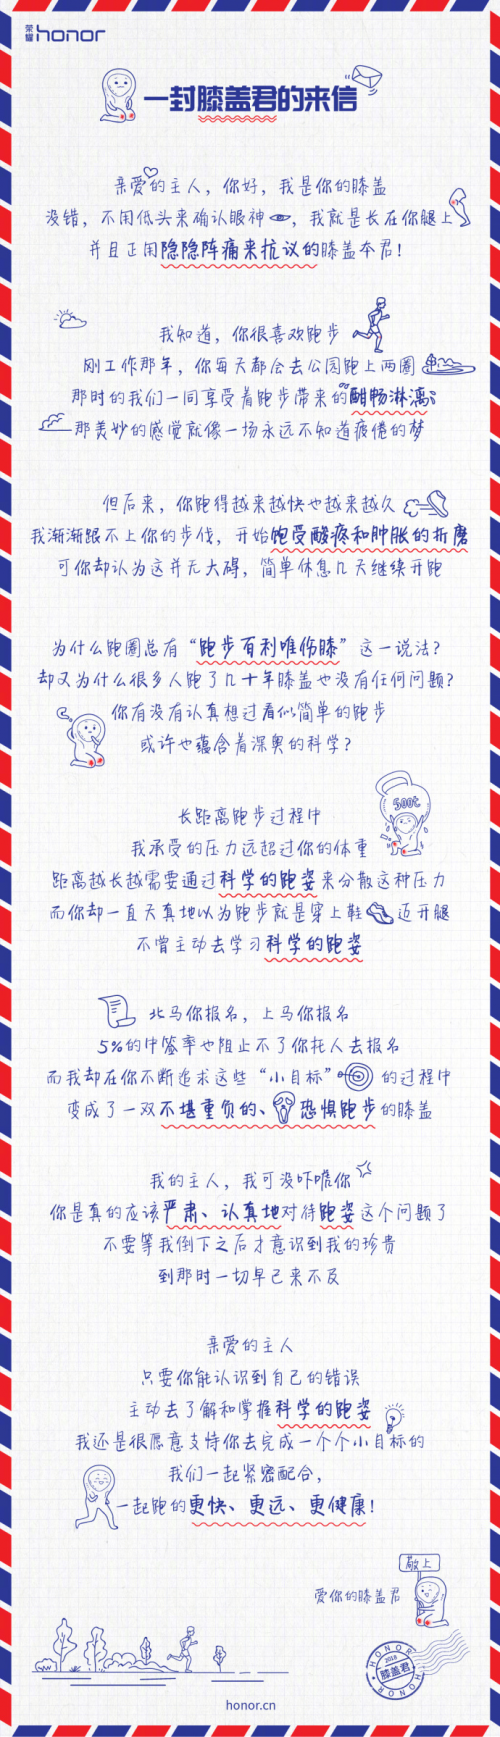 荣耀 honor
一封膝盖君的来信
亲爱的主人，你好，我是你的膝盖
没错，不用低头来确认眼神，我就是长在你腿上
并且正用隐隐阵痛来抗议的膝盖本君！
我知道，你很喜欢跑步
刚工作那年，你每天都会去公园跑上两圈
那时的我们一同享受着跑步带来的“酣畅淋漓”
那美妙的感觉就像一场永远不知道疲倦的梦
但后来，你跑得越来越快也越来越久
我渐渐跟不上你的步伐，开始饱受酸疼和肿胀的折磨
可你却认为这并无大碍，简单休息几天继续开跑
为什么跑圈总有“跑步百利唯伤膝”这一说法？
却又为什么很多人跑了几十年膝盖也没有任何问题？
你有没有认真想过看似简单的跑步
或许也蕴含着深奥的科学？
500t
长距离跑步过程中
我承受的压力远超过你的体重
距离越长越需要通过科学的跑姿来分散这种压力
而你却一直天真地以为跑步就是穿上鞋迈开腿
不曾主动去学习科学的跑姿
北马你报名，上马你报名
5%的中签率也阻止不了你托人去报名
而我却在你不断追求这些“小目标”的过程中
变成了一双不堪重负的、恐惧跑步的膝盖
我的主人，我可没吓唬你
你是真的应该严肃、认真地对待跑姿这个问题了
不要等我倒下之后才意识到我的珍贵
到那时一切早已来不及
亲爱的主人
只要你能认识到自己的错误
主动去了解和掌握科学的跑姿
我还是很愿意支持你去完成一个个小目标的
我们一起紧密配合，
一起跑的更快、更远、更健康！
敬上
爱你的膝盖君
HONOR
2018
膝盖君
HONOR
honor.cn